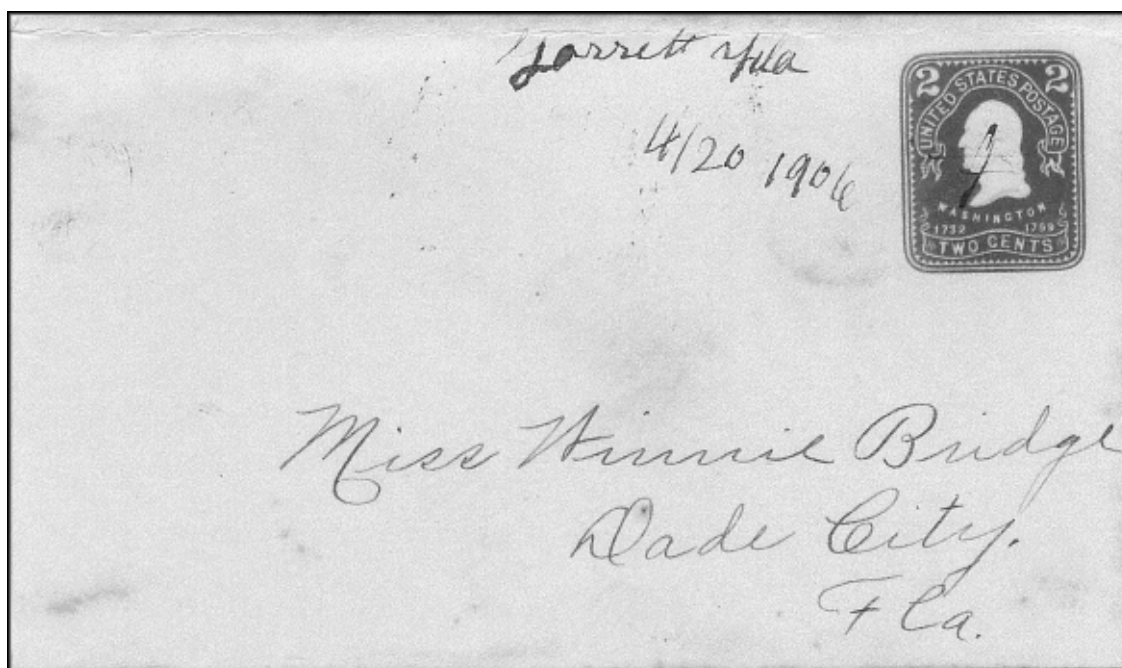 Fla
4/20 1906
2 2
UNITED STATES POSTAGE
WASHINGTON
1732 1799
TWO CENTS
Miss Winnie Bridge
Dade City.
Fla.